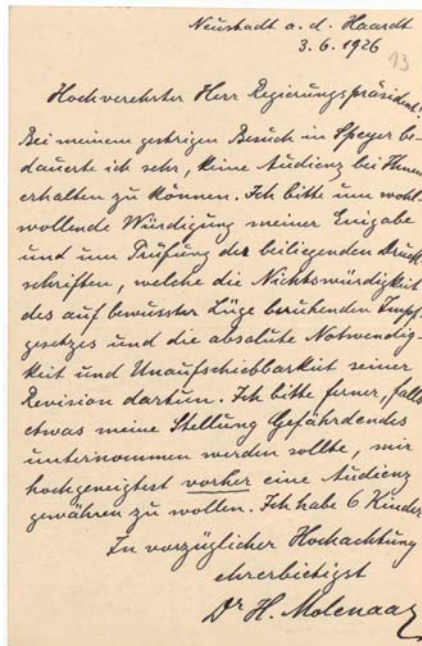 Neustadt a. d. Haardt
3. 6. 1926
13
Hochverehrter Herr Regierungspräsident!
Bei meinem gestrigen Besuch in Speyer be-
dauerte ich sehr, keine Audienz bei Ihnen
erhalten zu können. Ich bitte um wohl-
wollende Würdigung meiner Eingabe
und um Prüfung der beiliegenden Druck-
schriften, welche die Nichtswürdigkeit
des auf bewusster Lüge beruhenden Impf-
gesetzes und die absolute Notwendig-
keit und Unaufschiebbarkeit seiner
Revision dartun. Ich bitte ferner, falls
etwas meine Stellung Gefährdendes
unternommen werden sollte, mir
hochgeneigtest vorher eine Audienz
gewähren zu wollen. Ich habe 6 Kinder
In vorzüglicher Hochachtung
ehrerbietigst
Dr H. Molenaar